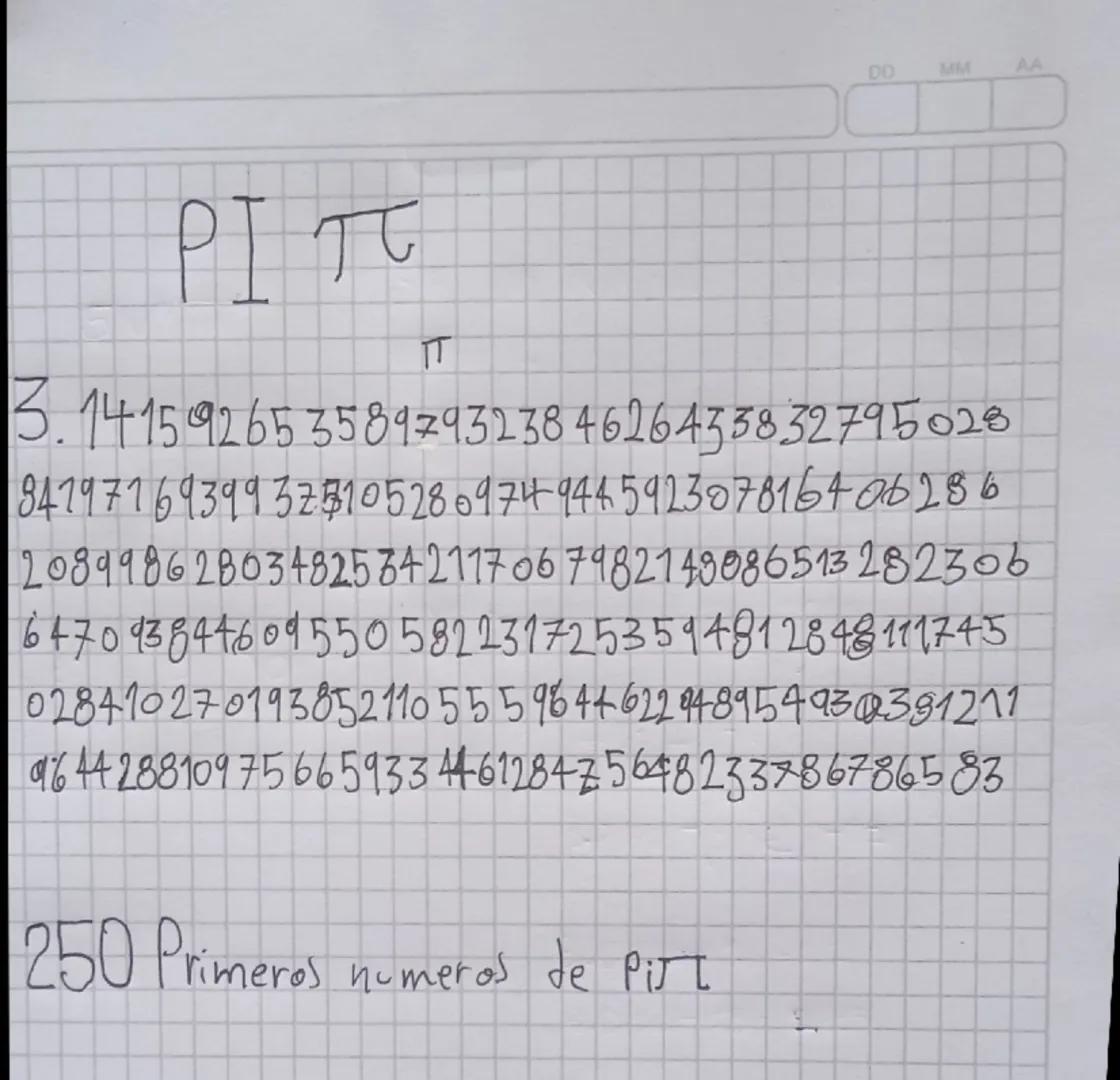 DD MM AA
PI π
π
3.1415926535897932384626433832795028
84197169399375105820974944592307816406286
208998628034825342117067982148086513282306
64709384460955058223172535948128481111745
028410270193852110555964462294895493038121 1
9644288109756659334461284756482337867865 83
250 Primeros numeros de Pi π